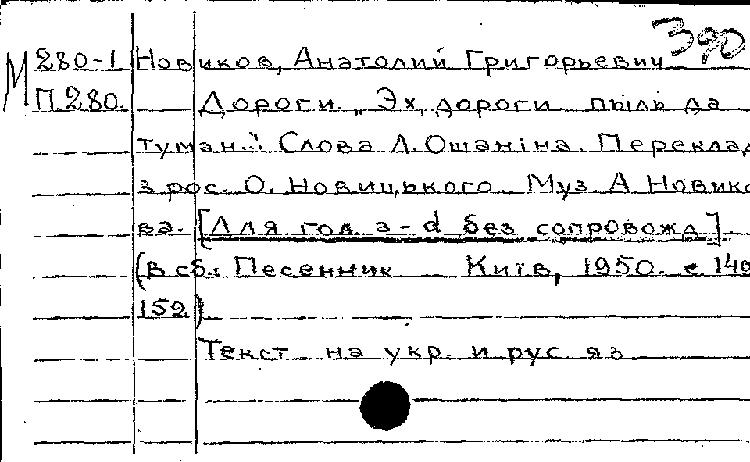 390
М 280-1 Новиков, Анатолий Григорьевич
П 280. Дороги. „Эх, дороги пыль да
туман." Слова Л. Ошаніна. Переклад
з рос. О. Новицького Муз А Новико
ва. [Для гол. a-d без сопровожд]
(В сб.: Песенник Київ, 1950. с 149
152)
Текст на укр. и рус яз